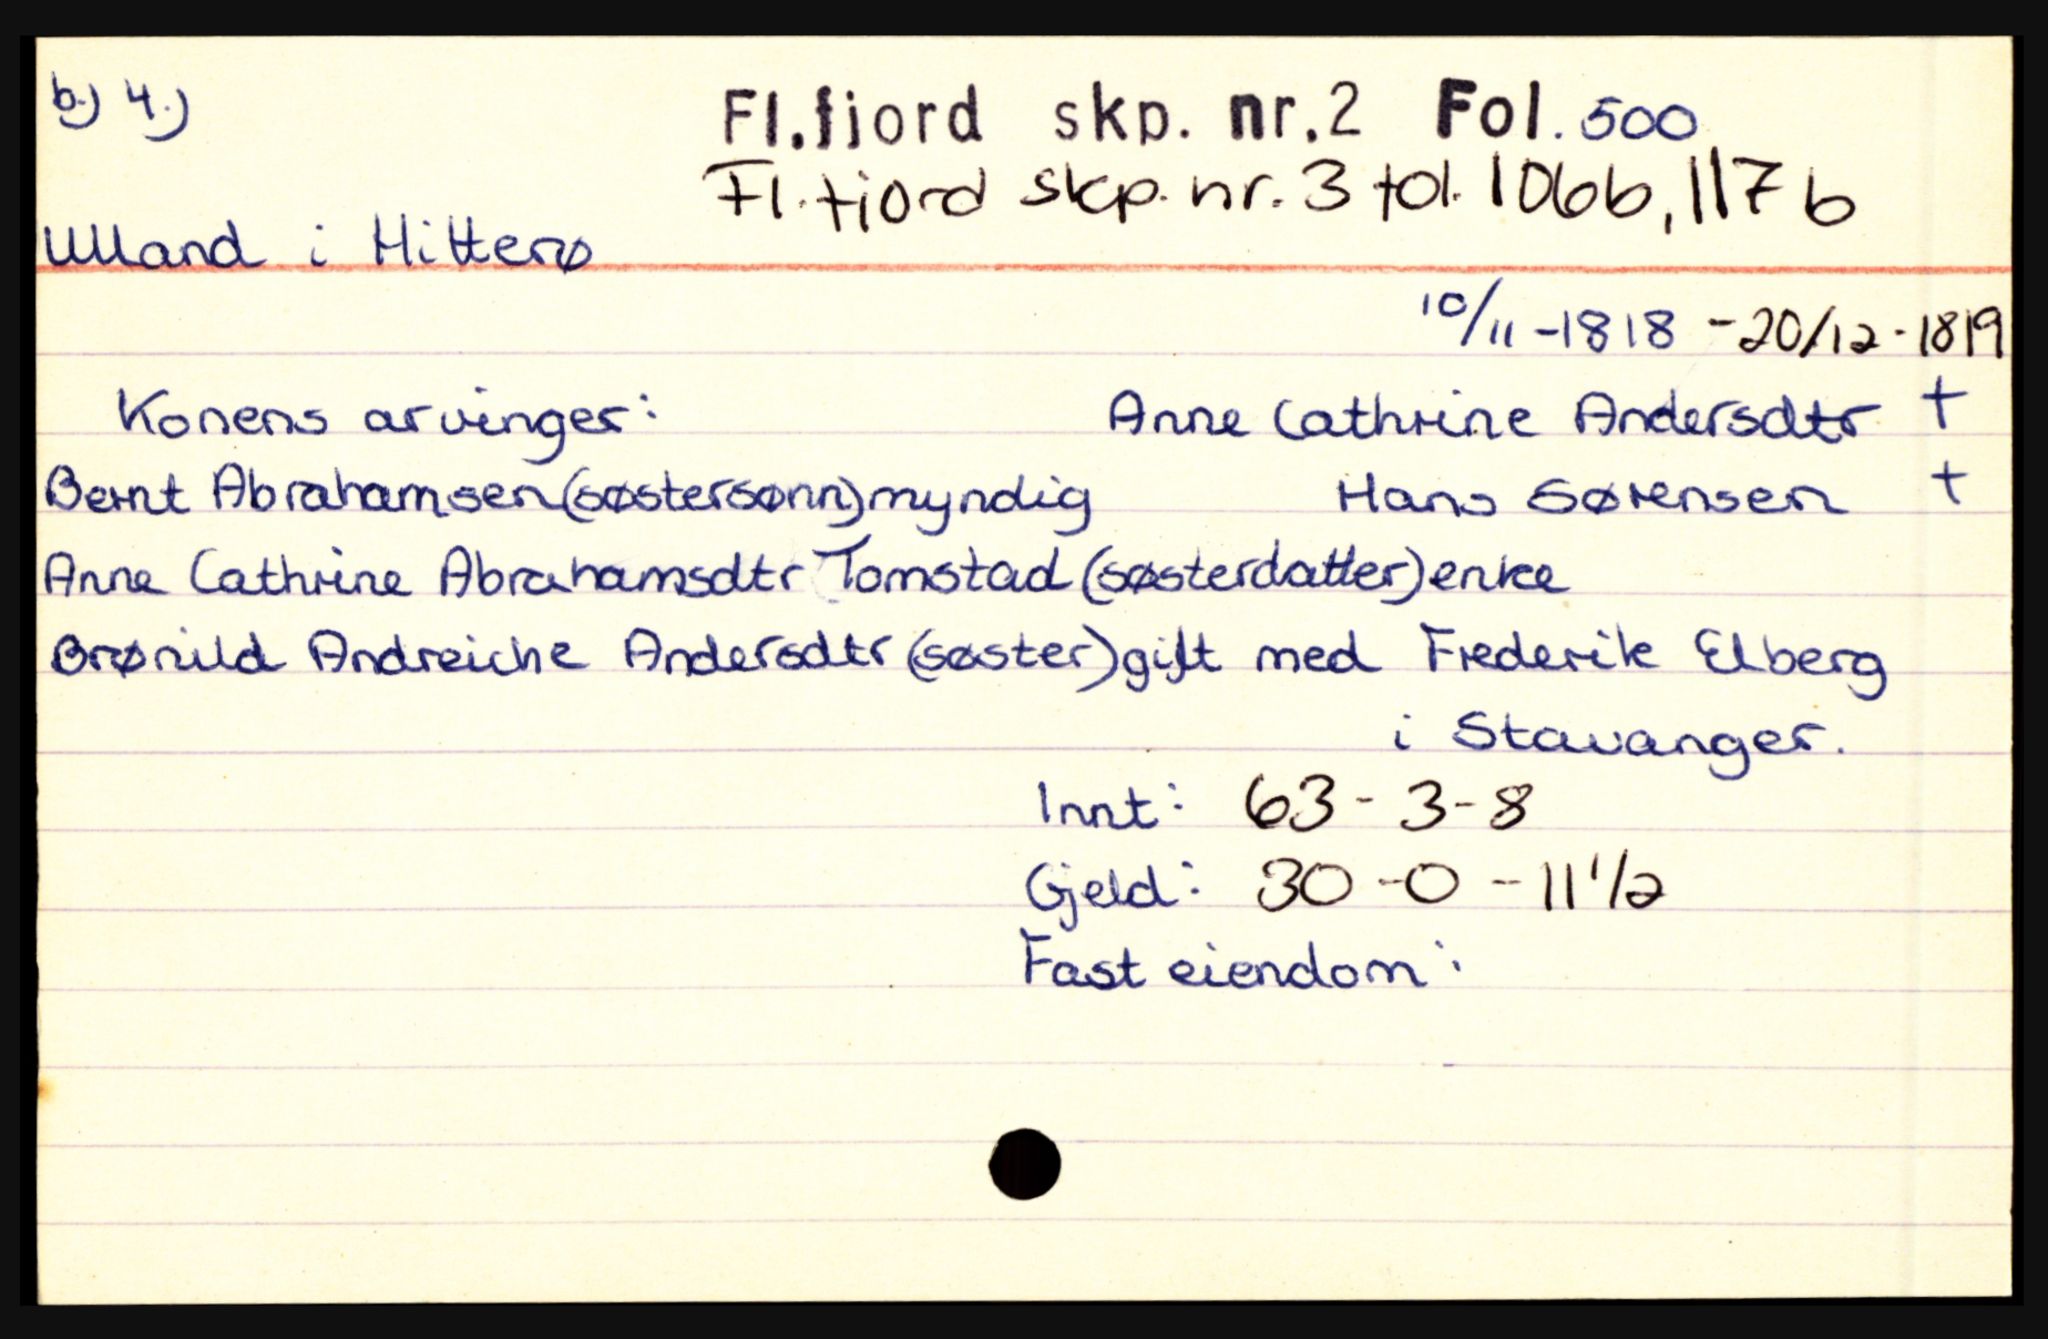 b.) 4.)
Fl.fjord skp. nr.2 Fol. 500
Fl.fjord skp. nr. 3 fol. 106b, 117b
Ulland i Hitterø
10/11 -1818 - 20/12 - 1819
Konens arvinger: Anne Cathrine Andersdtr +
Bernt Abrahamsen (søstersønn) myndig Hans Sørensen +
Anne Cathrine Abrahamsdtr Tomstad (søsterdatter) enke
Brønild Andreiche Andersdtr (søster) gift med Frederik Elberg
i Stavanger.
Innt: 63 - 3 - 8
Gjeld: 30 - 0 - 11 1/2
Fast eiendom: